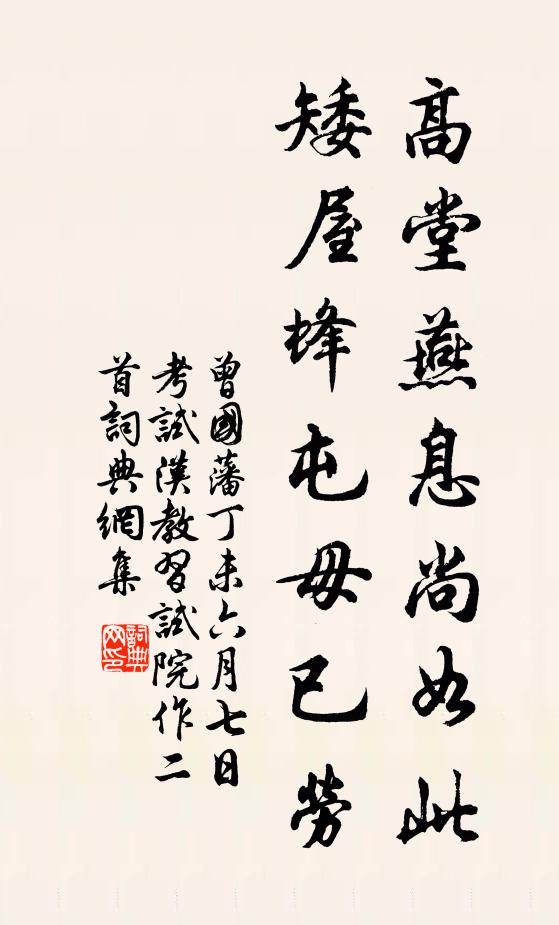 高堂燕息尚如此
矮屋蜂屯毋已勞
曾國藩丁未六月七日
考試漢教習試院作二
首詞典網集
詞典
网印